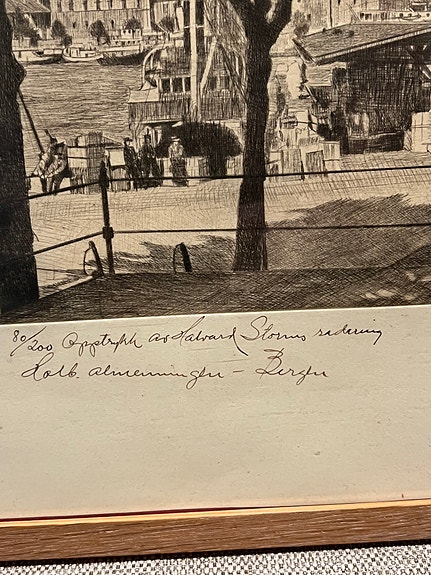 80/200 Opptrykk av Halvard Storms radering
Holb. almenningen - Bergen